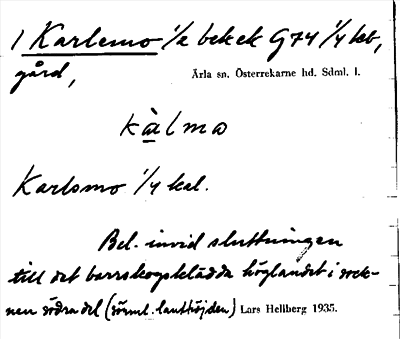 1 Karlemo 1/2 bekek G74 1/4 kb,
gård, Ärla sn. Österrekarne hd. Sdml. l.
kàlmo
Karlsmo 1/4 kal.
Bel. invid sluttningen
till det barrskogsklädda höglandet i sock-
nens södra del (sörml. lanthöjden) Lars Hellberg 1935.